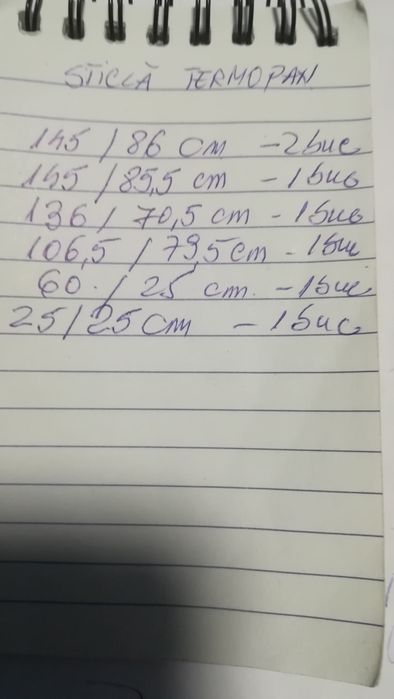 STICLĂ TERMOPAN
145 / 86 cm - 2 buc
145 / 85,5 cm - 1 buc
136 / 70,5 cm - 1 buc
106,5 / 79,5 cm - 1 buc
60 / 25 cm. - 1 buc
25 / 25 cm - 1 buc